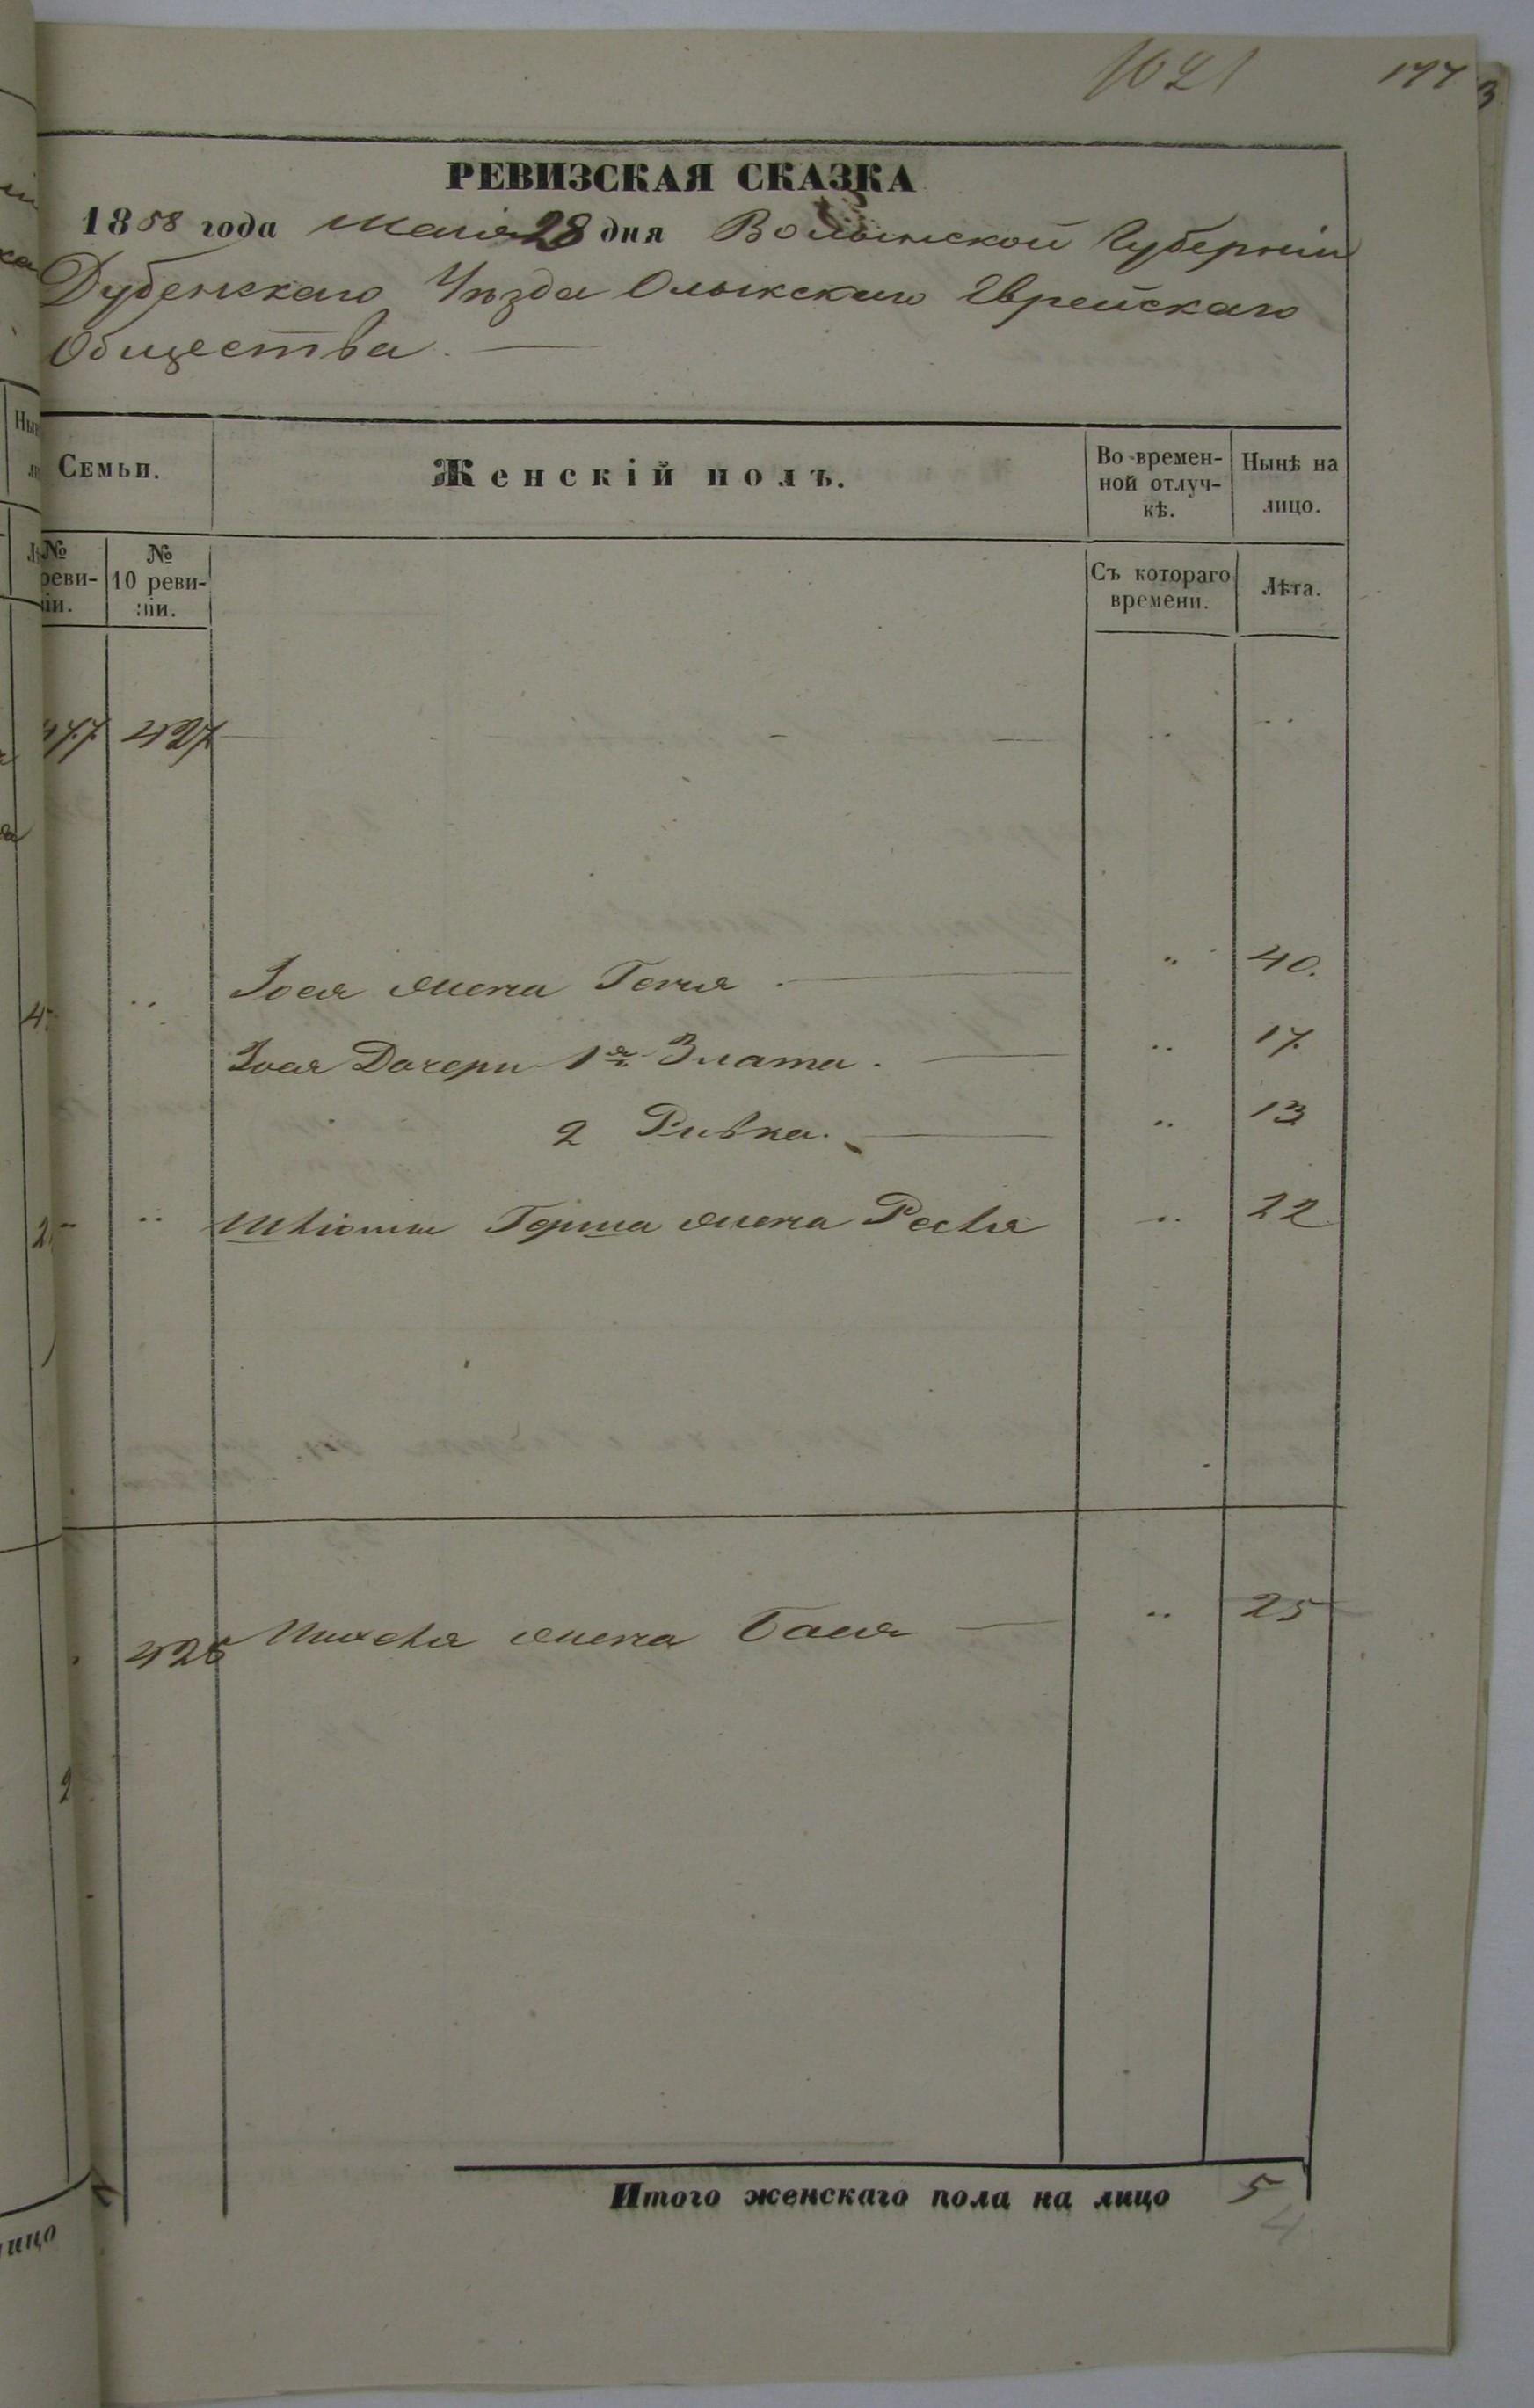 1021 177
РЕВИЗСКАЯ СКАЗКА
1858 года Маія 28 дня Волынской Губерніи
Дубенскаго Уѣзда Олыкскаго Еврейскаго
Общества.
Семьи.
Женскій полъ.
Во времен-
ной отлуч-
кѣ.
Нынѣ на
лицо.
№
реви-
зіи.
№
10 реви-
зіи.
Съ котораго
времени.
Лѣта.
427
Іося жена Геня 40.
Іося Дочери 1я Злата. 17
2 Ривка. 13
Герша жена Песя 22
428 жена Бася 25
Итого женскаго пола на лицо 5
4